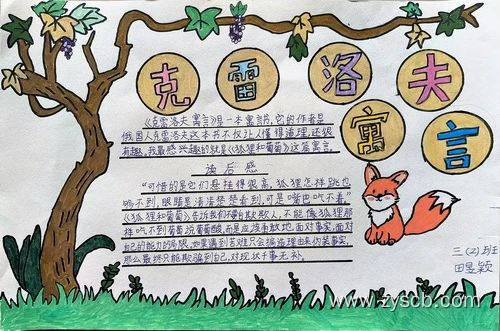 克雷洛夫
寓言
《克雷洛夫寓言》是一本寓言书,它的作者是
俄国人克雷洛夫这本书不仅让人懂得道理,还很
有趣,我最感兴趣的就是《狐狸和葡萄》这篇寓言。
读后感
"可惜的是它们悬挂得很高,狐狸怎样跳也
够不到,眼睛里清清楚楚看到,可是嘴巴吃不着。"
《狐狸和葡萄》告诉我们要自欺欺人,不能像狐狸那
样吃不到葡萄说葡萄酸,而是应该勇敢地面对事实,面对
自己的能力的局限,如果遇到苦难只会编造理由来伪装事实,
那么最终只能欺骗到自己,对现状于事无补。
三(2)班
田昱颖
www.zyscb.com